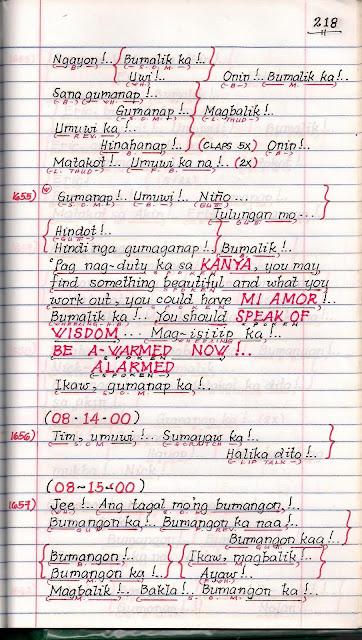 218
Ngayon!.. Bumalik ka!..
Uwi!.. Onin!.. Bumalik ka!..
Sana gumanap!..
Gumanap!.. Magbalik!..
Umuwi ka!..
Hinahanap!.. (CLAPS 5X) Onip!..
Matakot!.. Umuwi ka na!.. (2x)
1655) Gumanap!.. Umuwi!.. Niño...
Tulungan mo...
Hindot!..
Hindi nga gumaganap!.. Bumalik!..
'Pag nag-duty ka sa KANYA, you may
find something beautiful and what you
work out, you could have MI AMOR!..
Bumalik ka!.. You should SPEAK OF
WISDOM... Mag-isiiip ka!..
BE A-WARMED NOW!..
ALARMED
Ikaw, gumanap ka!..
(08-14-00)
1656) Tim, umuwi!.. Sumayaw ka!..
Halika dito!..
(08-15-00)
1657) Jee!.. Ang tagal mo'ng bumangon,!..
Bumangon ka,!.. Bumangon ka naa!..
Bumangon kaa!..
Bumangon!.. Ikaw, magbalik!..
Bumangon ka!.. Ayaw!..
Magbalik!.. Bakla!.. Bumangon ka!..